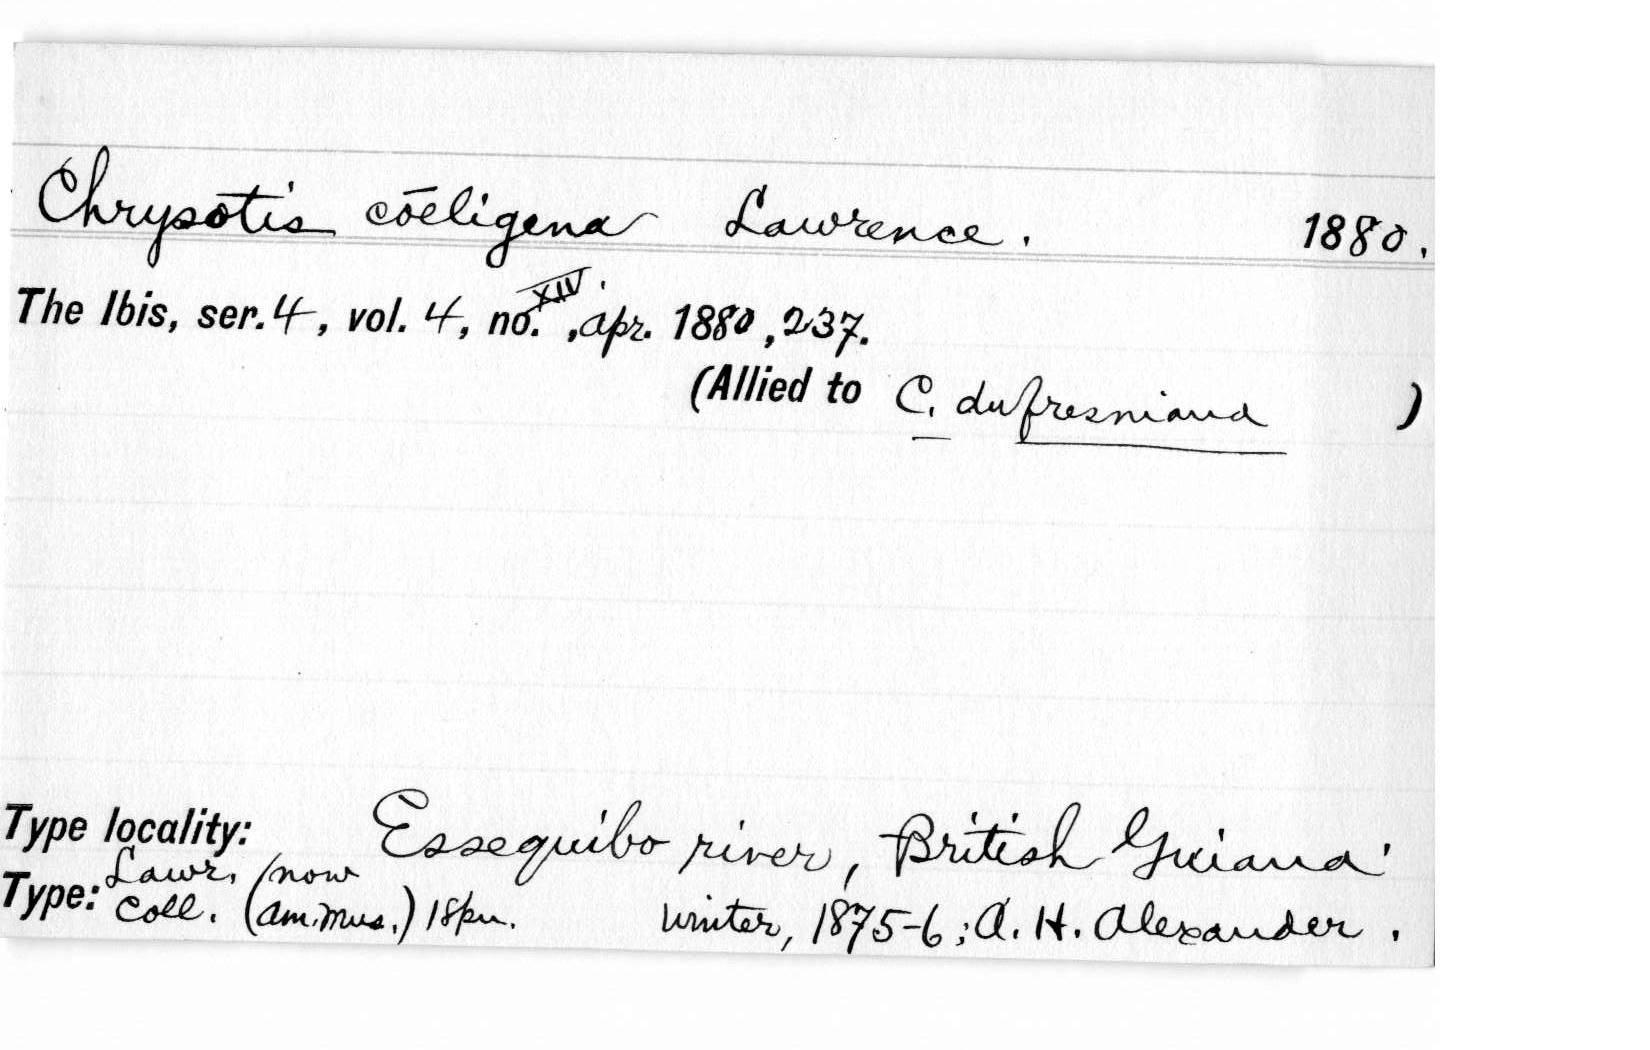 Chrysotis cōeligena Lawrence. 1880.
The Ibis, ser. 4, vol. 4, no. XIV., apr. 1880, 237.
(Allied to C. dufresniana )
Type locality: Essequibo river, British Guiana
Type: Lawr. Coll. (now Am. Mus.) 1 spm. Winter, 1875-6; A. H. Alexander.